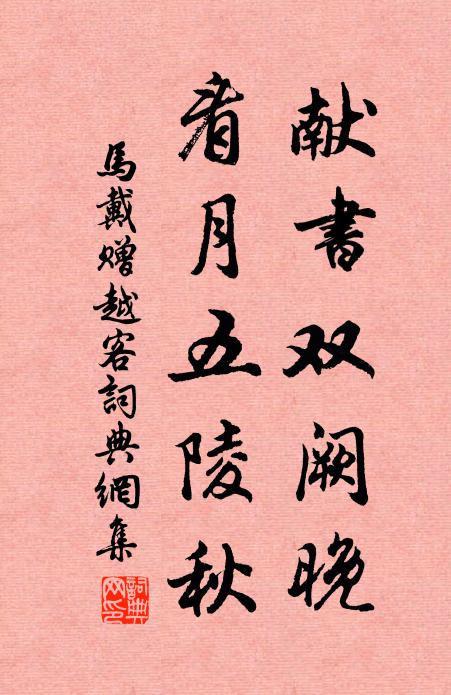 献書双阙晚
看月五陵秋
馬戴赠越客詞典網集
詞典网印